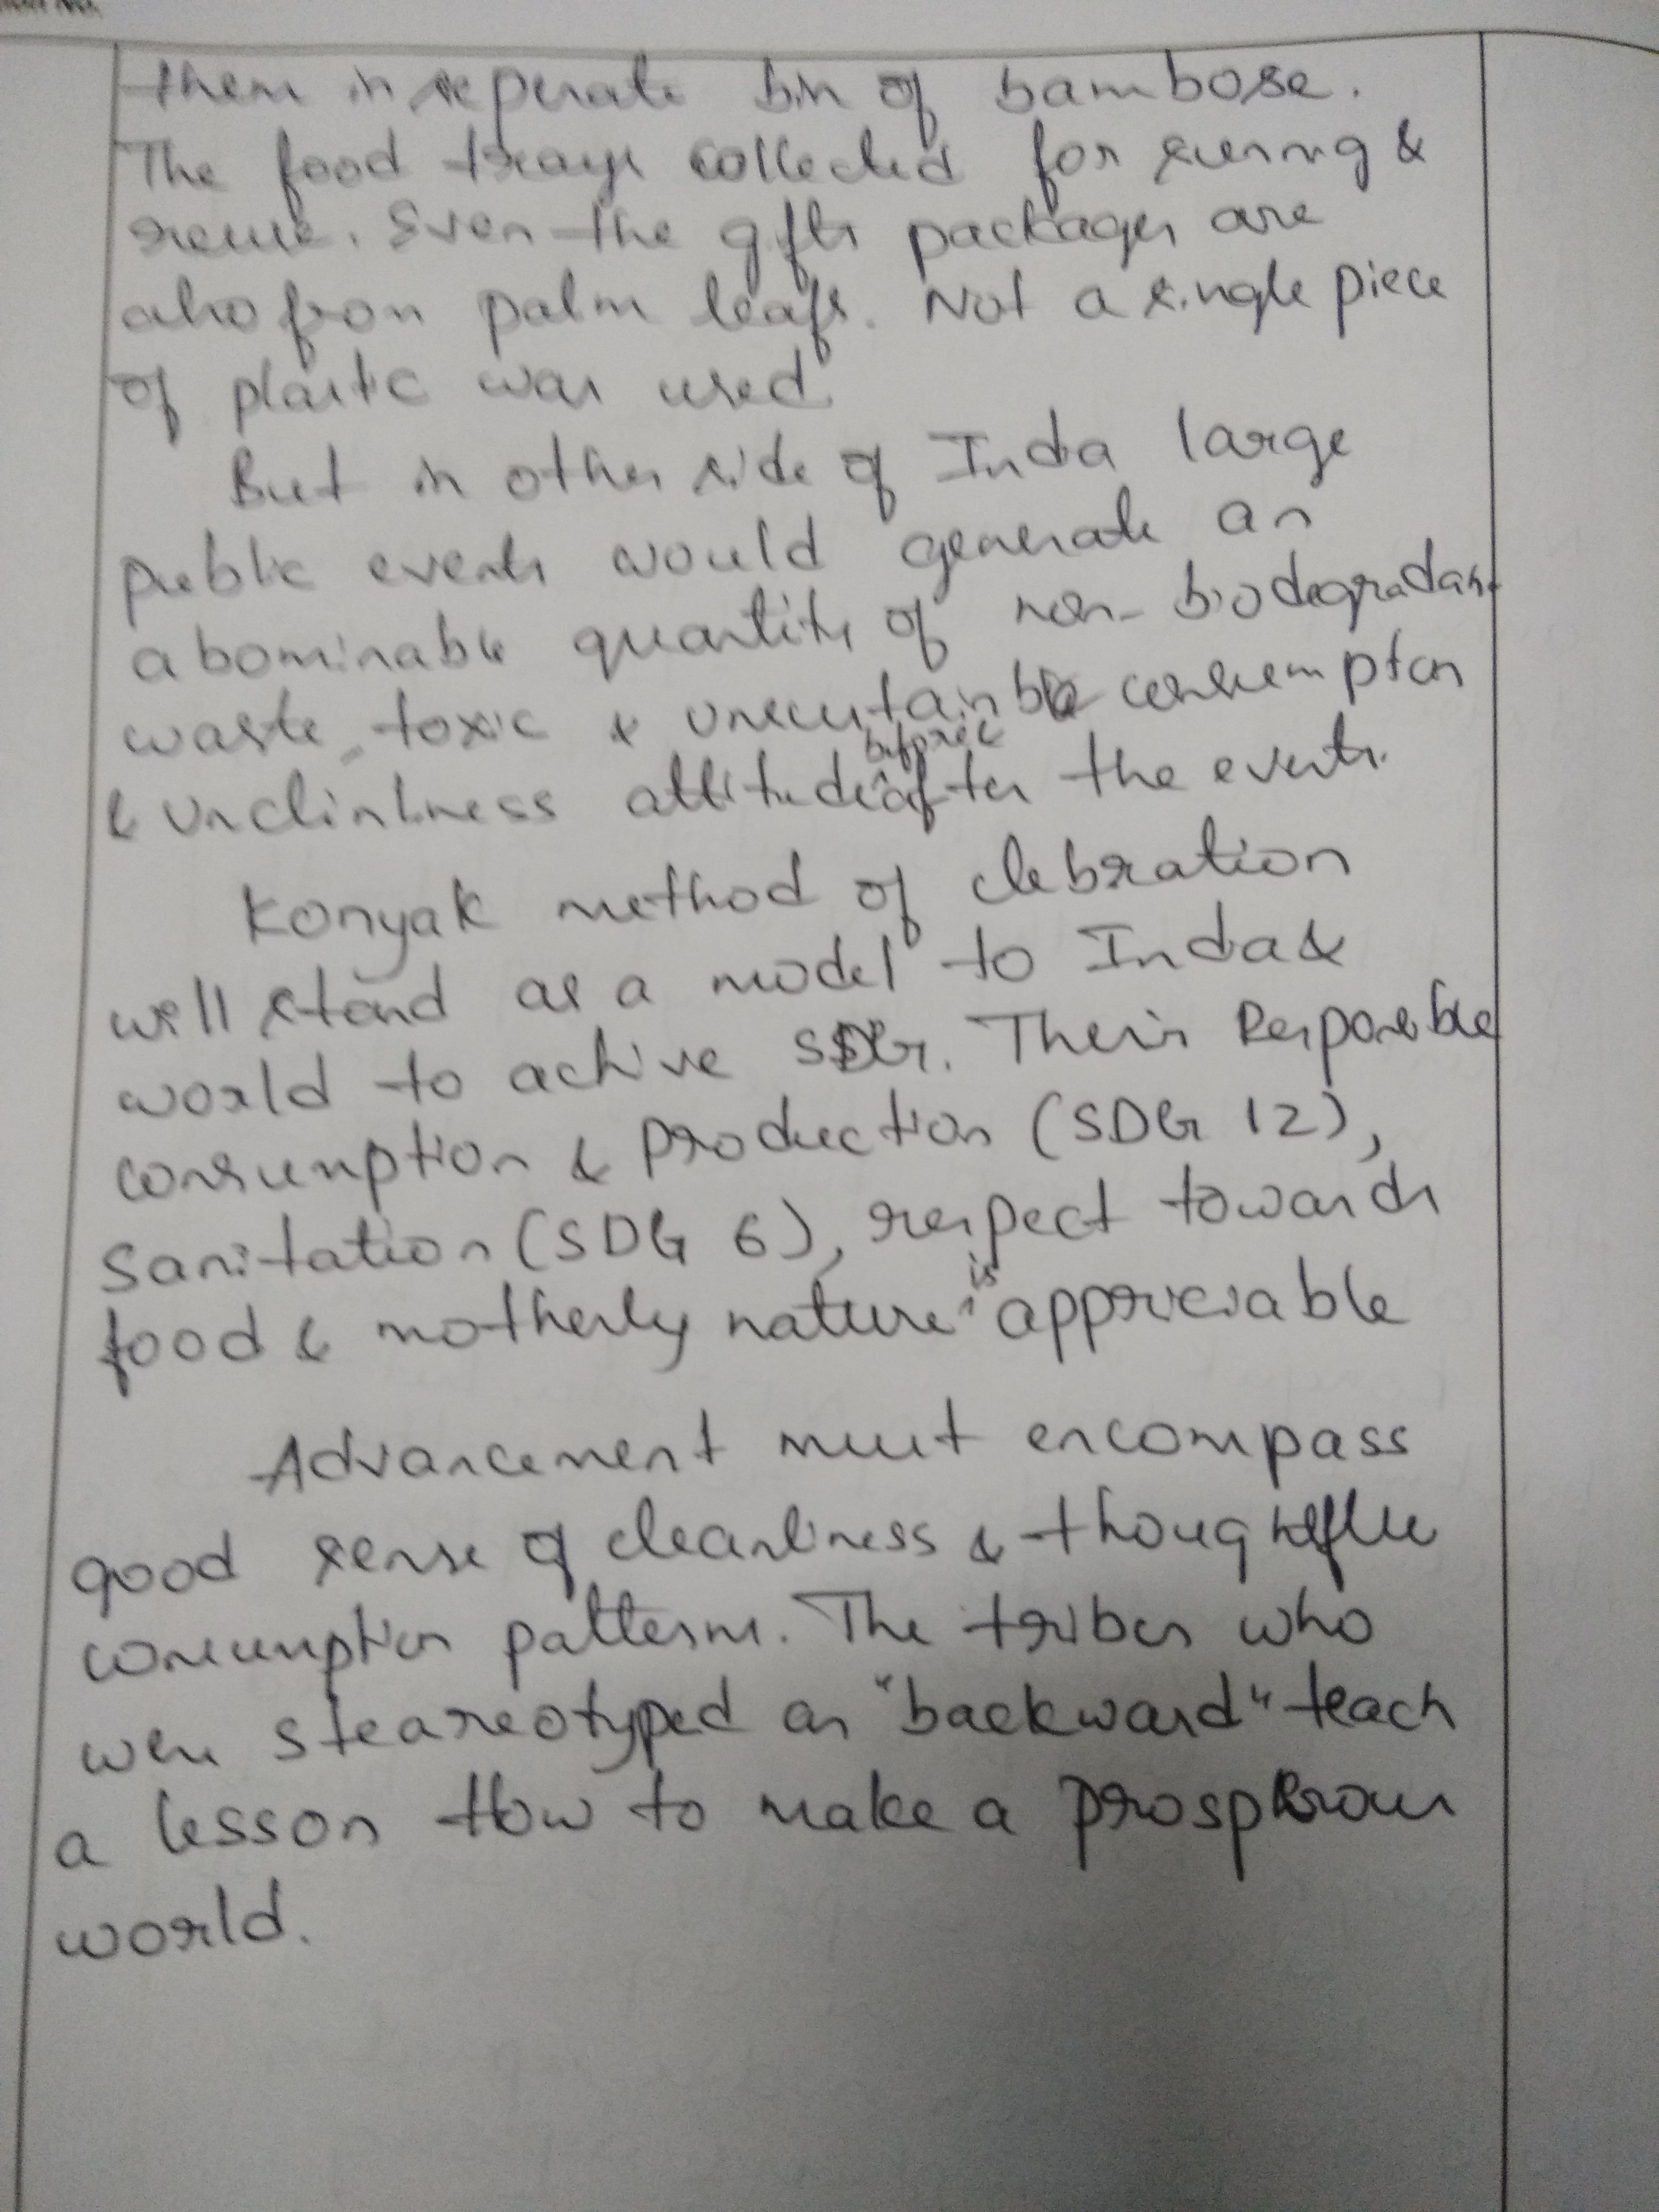 them in seperate bin of bambose.
The food trays collected for &
reuse. Even the gifts packages are
also from palm leafs. Not a single piece
of plastic was used
But in other side of India large
public events would generate an
abominable quantity of non-biodegradable
waste, toxic & unsustainable consumption
& unclinliness attitude before & after the events.
Konyak method of clebration
will stand as a model to India &
world to achive SDG. Their Responsible
consumption & production (SDG 12),
Sanitation (SDG 6), respect towards
food & motherly nature is appreciable
Advancement must encompass
good sense of cleanliness & thoughtful
consumption patterns. The tribes who
were steareotyped as "backward" teach
a lesson How to make a prosperous
world.